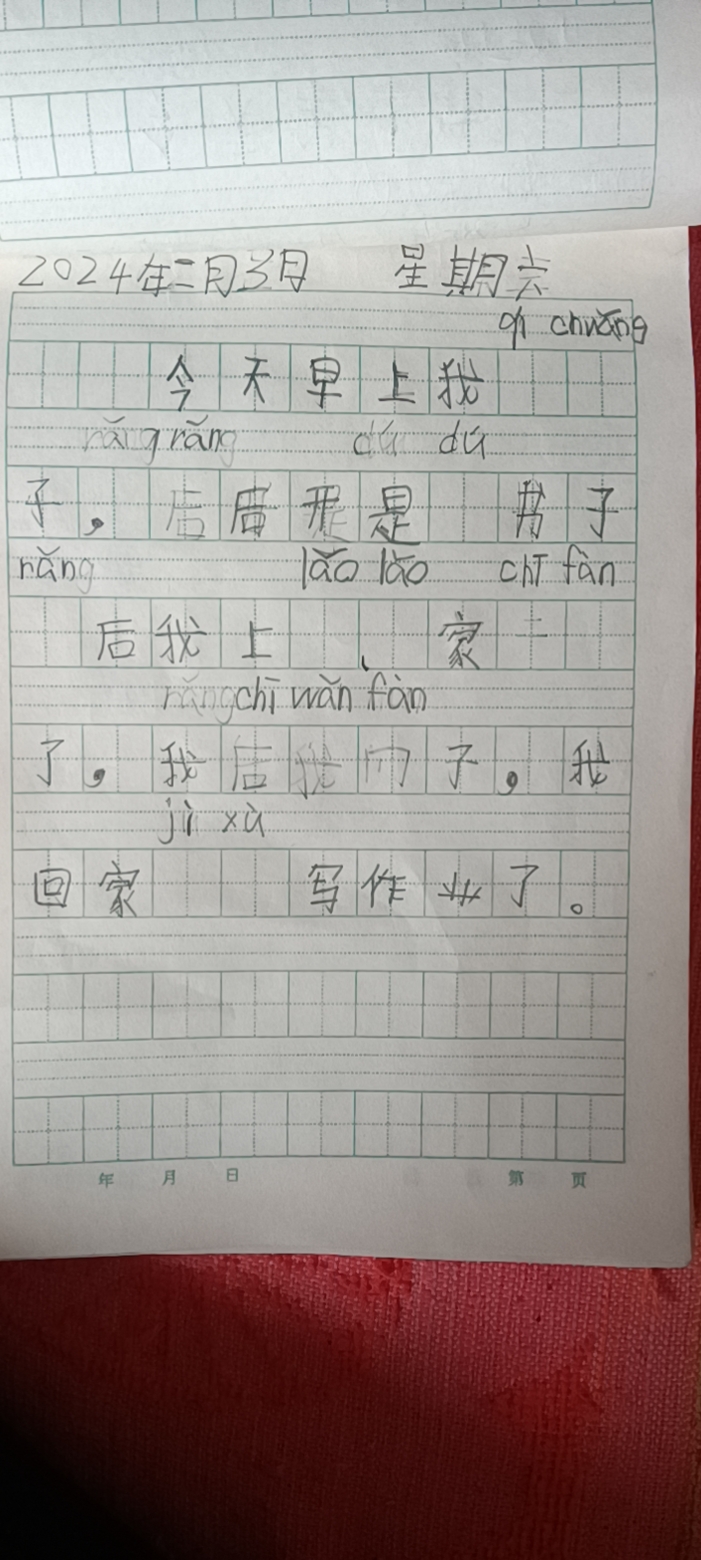 2024年二月3日 星期六
qi chuǎng
今天早上我
rǎng rǎng dú dú
子，后后开是 书子
rǎng lǎo lǎo chī fàn
后我上 家
rǎng chī wǎn fàn
了，我后我门子，我
jì xù
回家 写作业了。
年 月 日 第 页